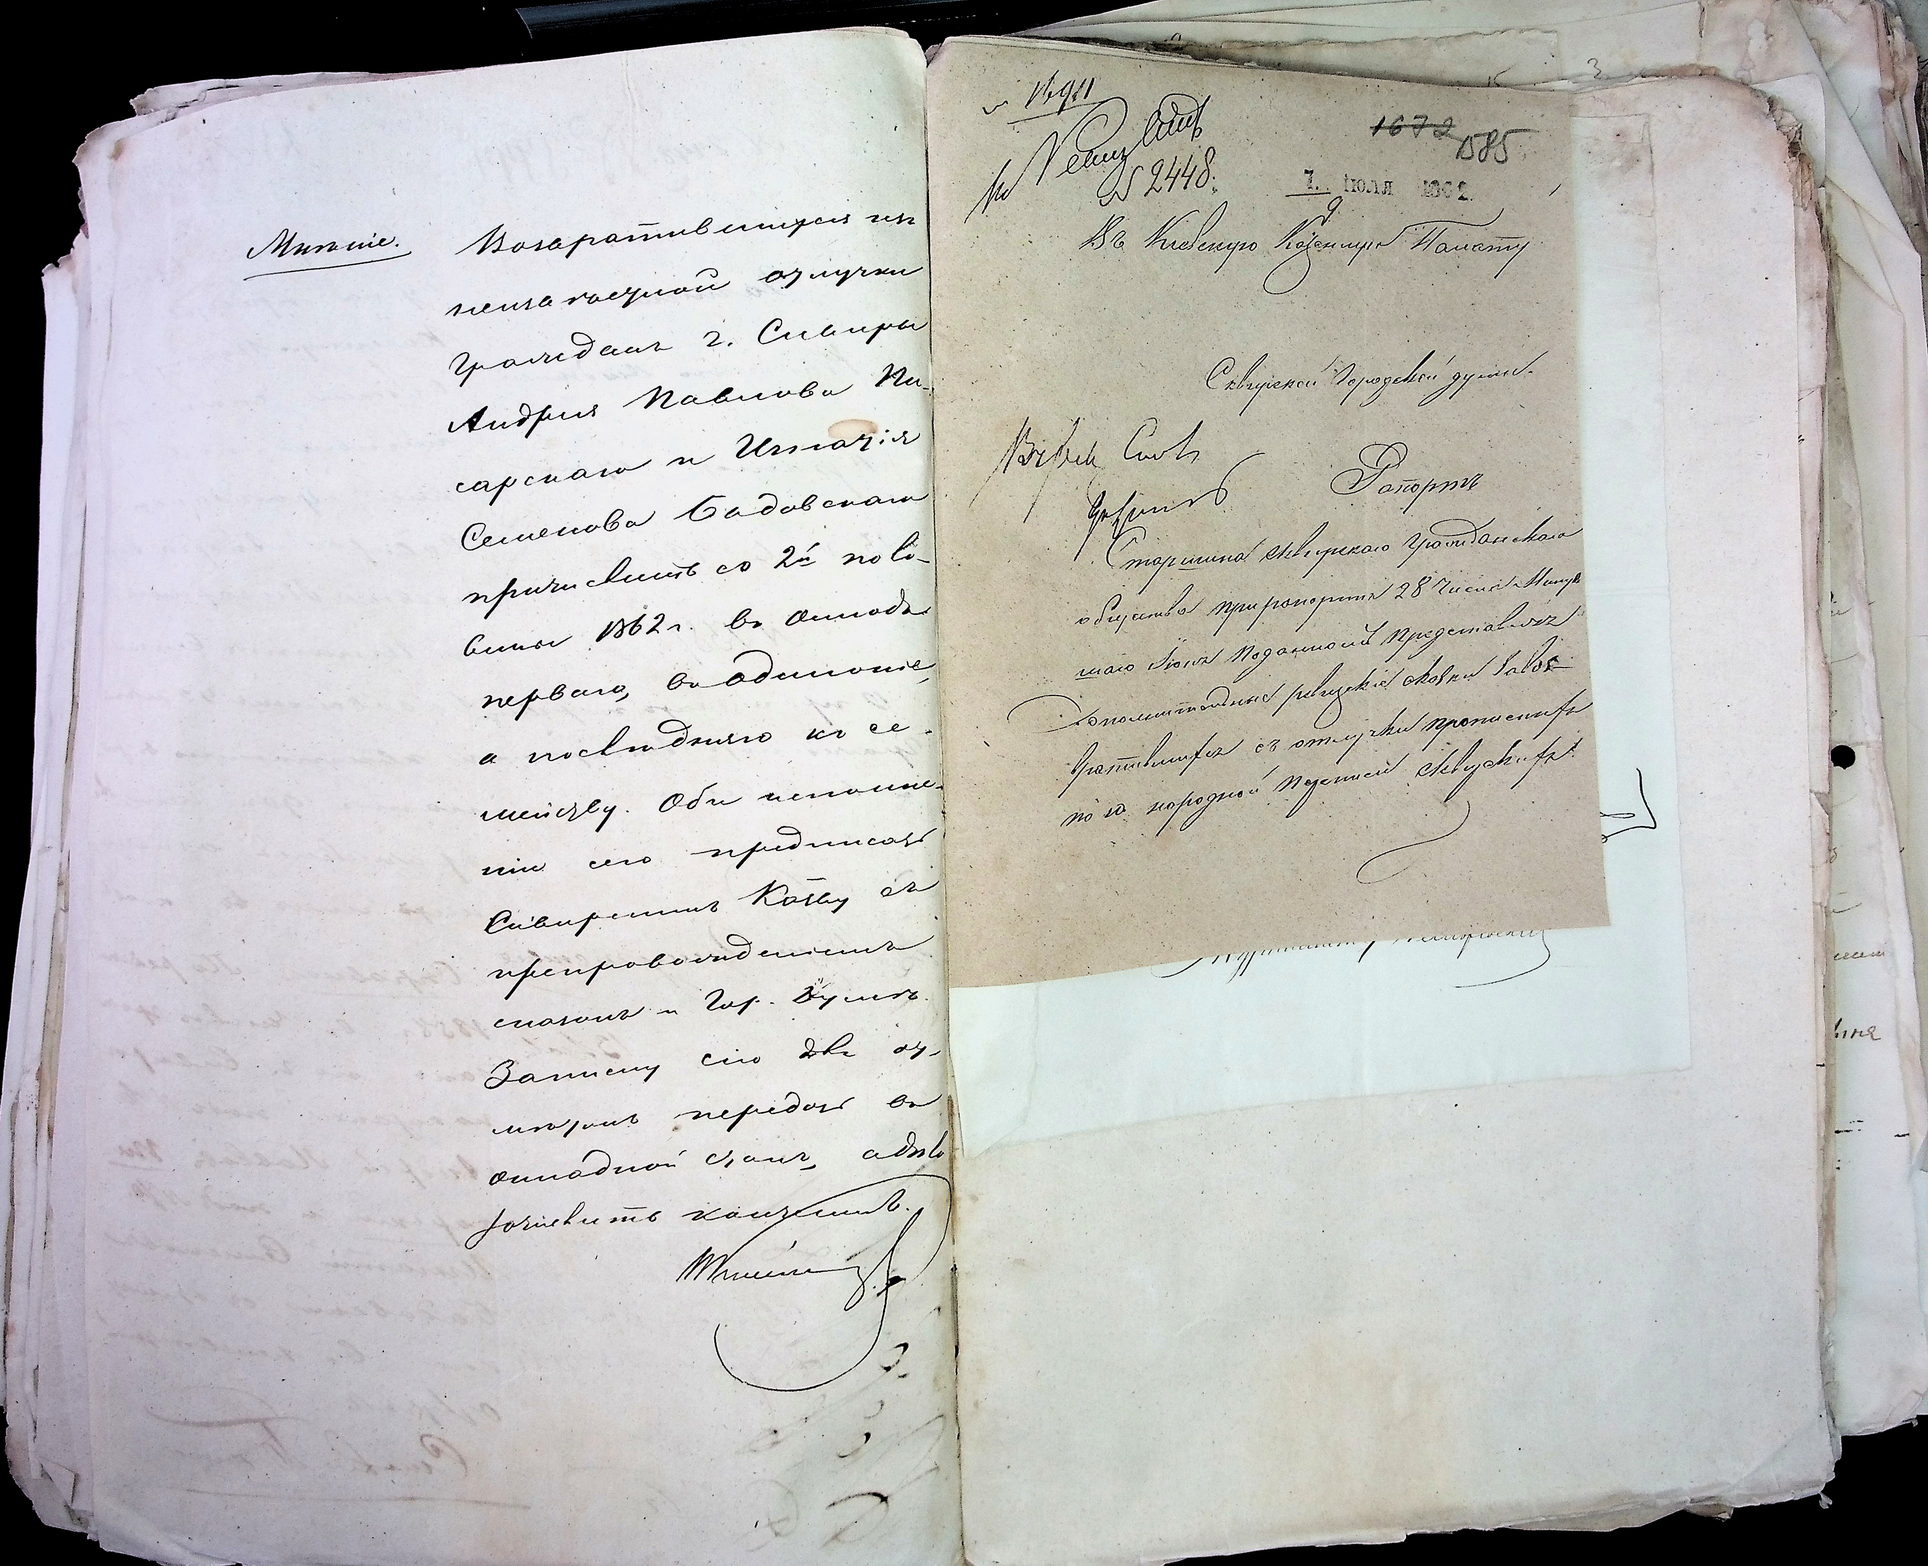 Мнѣніе.
Возвратившихся изъ
неизвѣстной отлучки
гражданъ г. Сквиры
Андрея Павлова Пи-
сарскаго и Игнатія
Семенова Садовскаго
причислить со 2й поло-
вины 1862 г. въ окладъ
перваго, въ одиночіе,
а послѣдняго къ се-
мейству. Объ исполне-
ніи сего предписать
Сквирскимъ Казву съ
препровожденіемъ
сказокъ и Гор. Думѣ.
Записку сію для от-
мѣтокъ передать въ
окладной столъ, а дѣло
зачислить конченнымъ.
№ 911
1672 1585
№ 2448.
7. ІЮЛЯ 1862.
Въ Кіевскую Казенную Палату
Сквирской Городской думы.
Рапортъ
Старшина сквирскаго гражданскаго
общества при рапортѣ 28 числа Минув
шаго Іюня поданномъ представилъ
дополнительныя ревизскія сказки о возв
ратившихся съ отлучки прописныхъ
по 10 народной переписи сквирскихъ